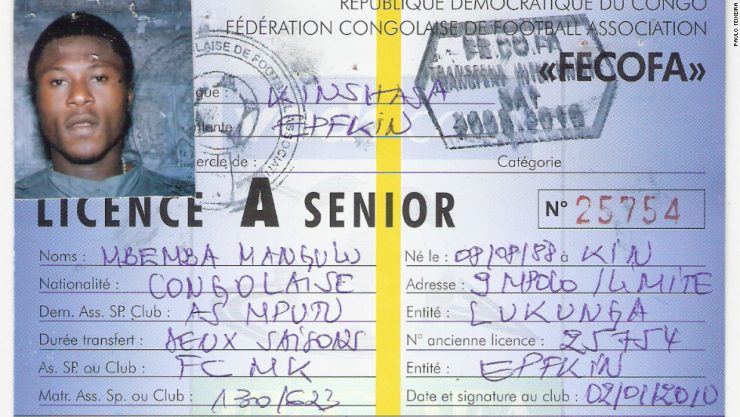 RÉPUBLIQUE DÉMOCRATIQUE DU CONGO
FÉDÉRATION CONGOLAISE DE FOOTBALL ASSOCIATION
«FECOFA»
FECOFA
TRANSFERT
2009-2010
KINSHASA
EPFKIN
Catégorie
LICENCE A SENIOR
N° 25754
Noms : MBEMBA MANGULU
Né le : 08/08/88 à KIN
Nationalité : CONGOLAISE
Adresse : 9 MPOLO /LIMITE
Dern. Ass. SP. Club : AS MPUTU
Entité : LUKUNGA
Durée transfert : DEUX SAISONS
N° ancienne licence : 25754
As. SP. ou Club : FC MK
Entité : EPFKIN
Matr. Ass. Sp. ou Club : 130/623
Date et signature au club : 02/01/2010
PAULO TEIXEIRA